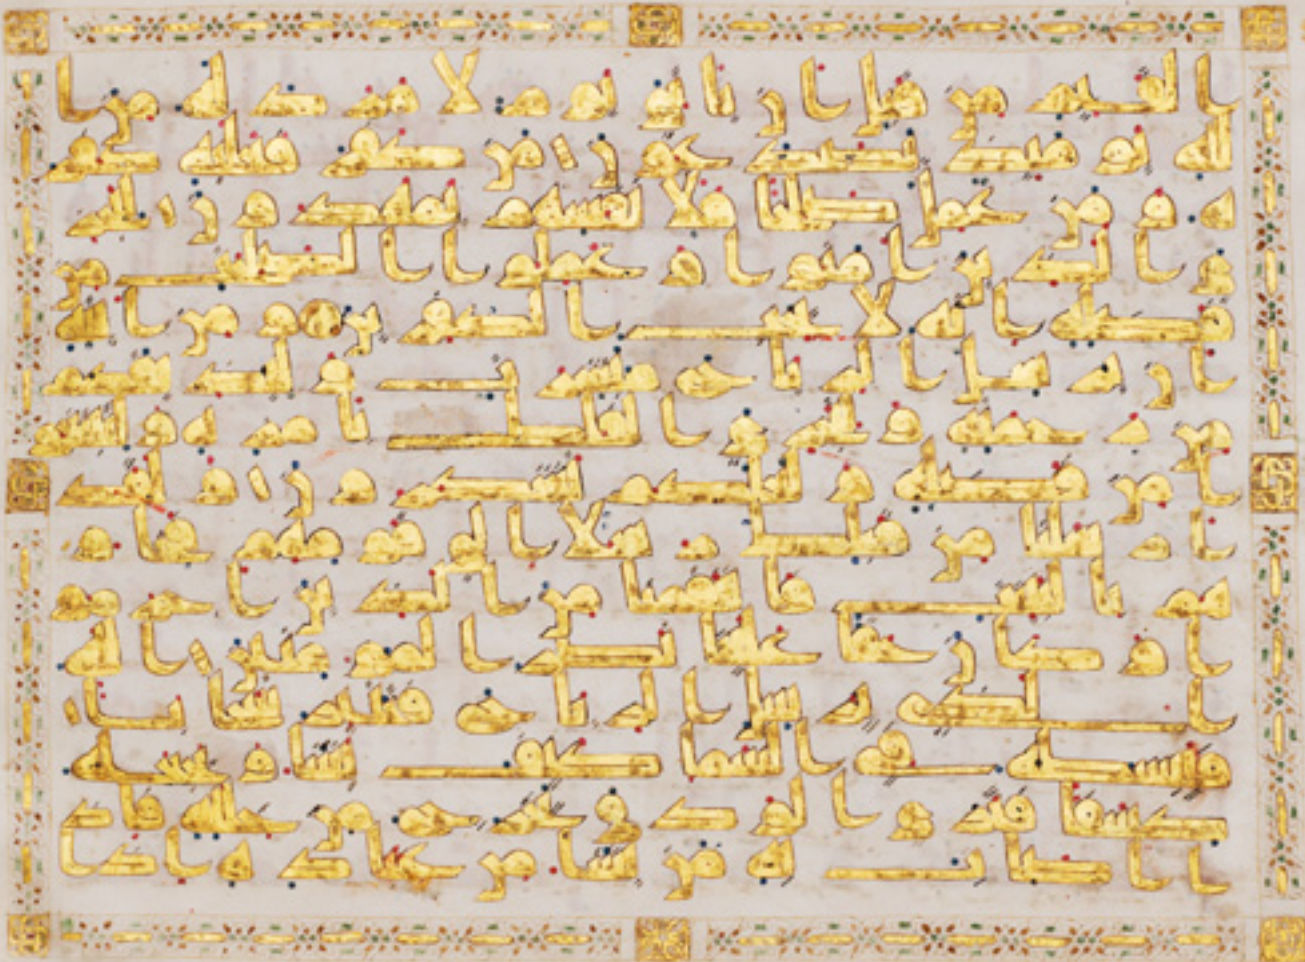 القيم من قبل ان ياتي يوم لا مرد له من ا
لله يومئذ يصدعون من كفر فعليه كفر
ه ومن عمل صلحا فلانفسهم يمهدون ليجز
ي الذين امنوا وعملوا الصلحت من
فضله انه لا يحب الكفرين ومن ا
يته ان يرسل الرياح مبشرت وليذيقكم
من رحمته ولتجري الفلك بامره ولتبتغو
ا من فضله ولعلكم تشكرون ولقد
ارسلنا من قبلك رسلا الى قومهم فجاو
هم بالبينت فانتقمنا من الذين اجرمو
ا وكان حقا علينا نصر المومنين الله
الذي يرسل الريح فتثير سحابا
فيبسطه في السما كيف يشا ويجعله
كسفا فترى الودق يخرج من خلله فاذ
ا اصاب به من يشا من عباده اذا